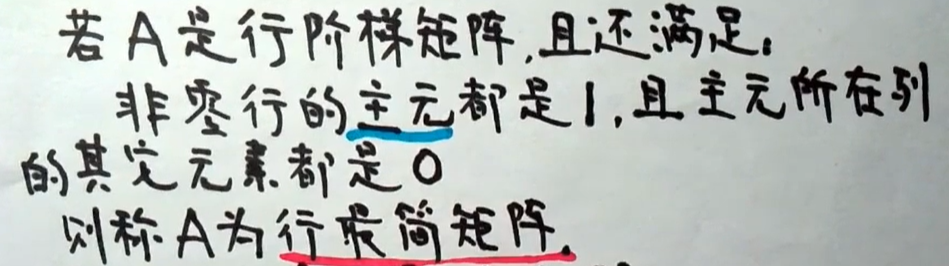 若A是行阶梯矩阵,且还满足:
非零行的主元都是1,且主元所在列
的其它元素都是0
则称A为行最简矩阵.